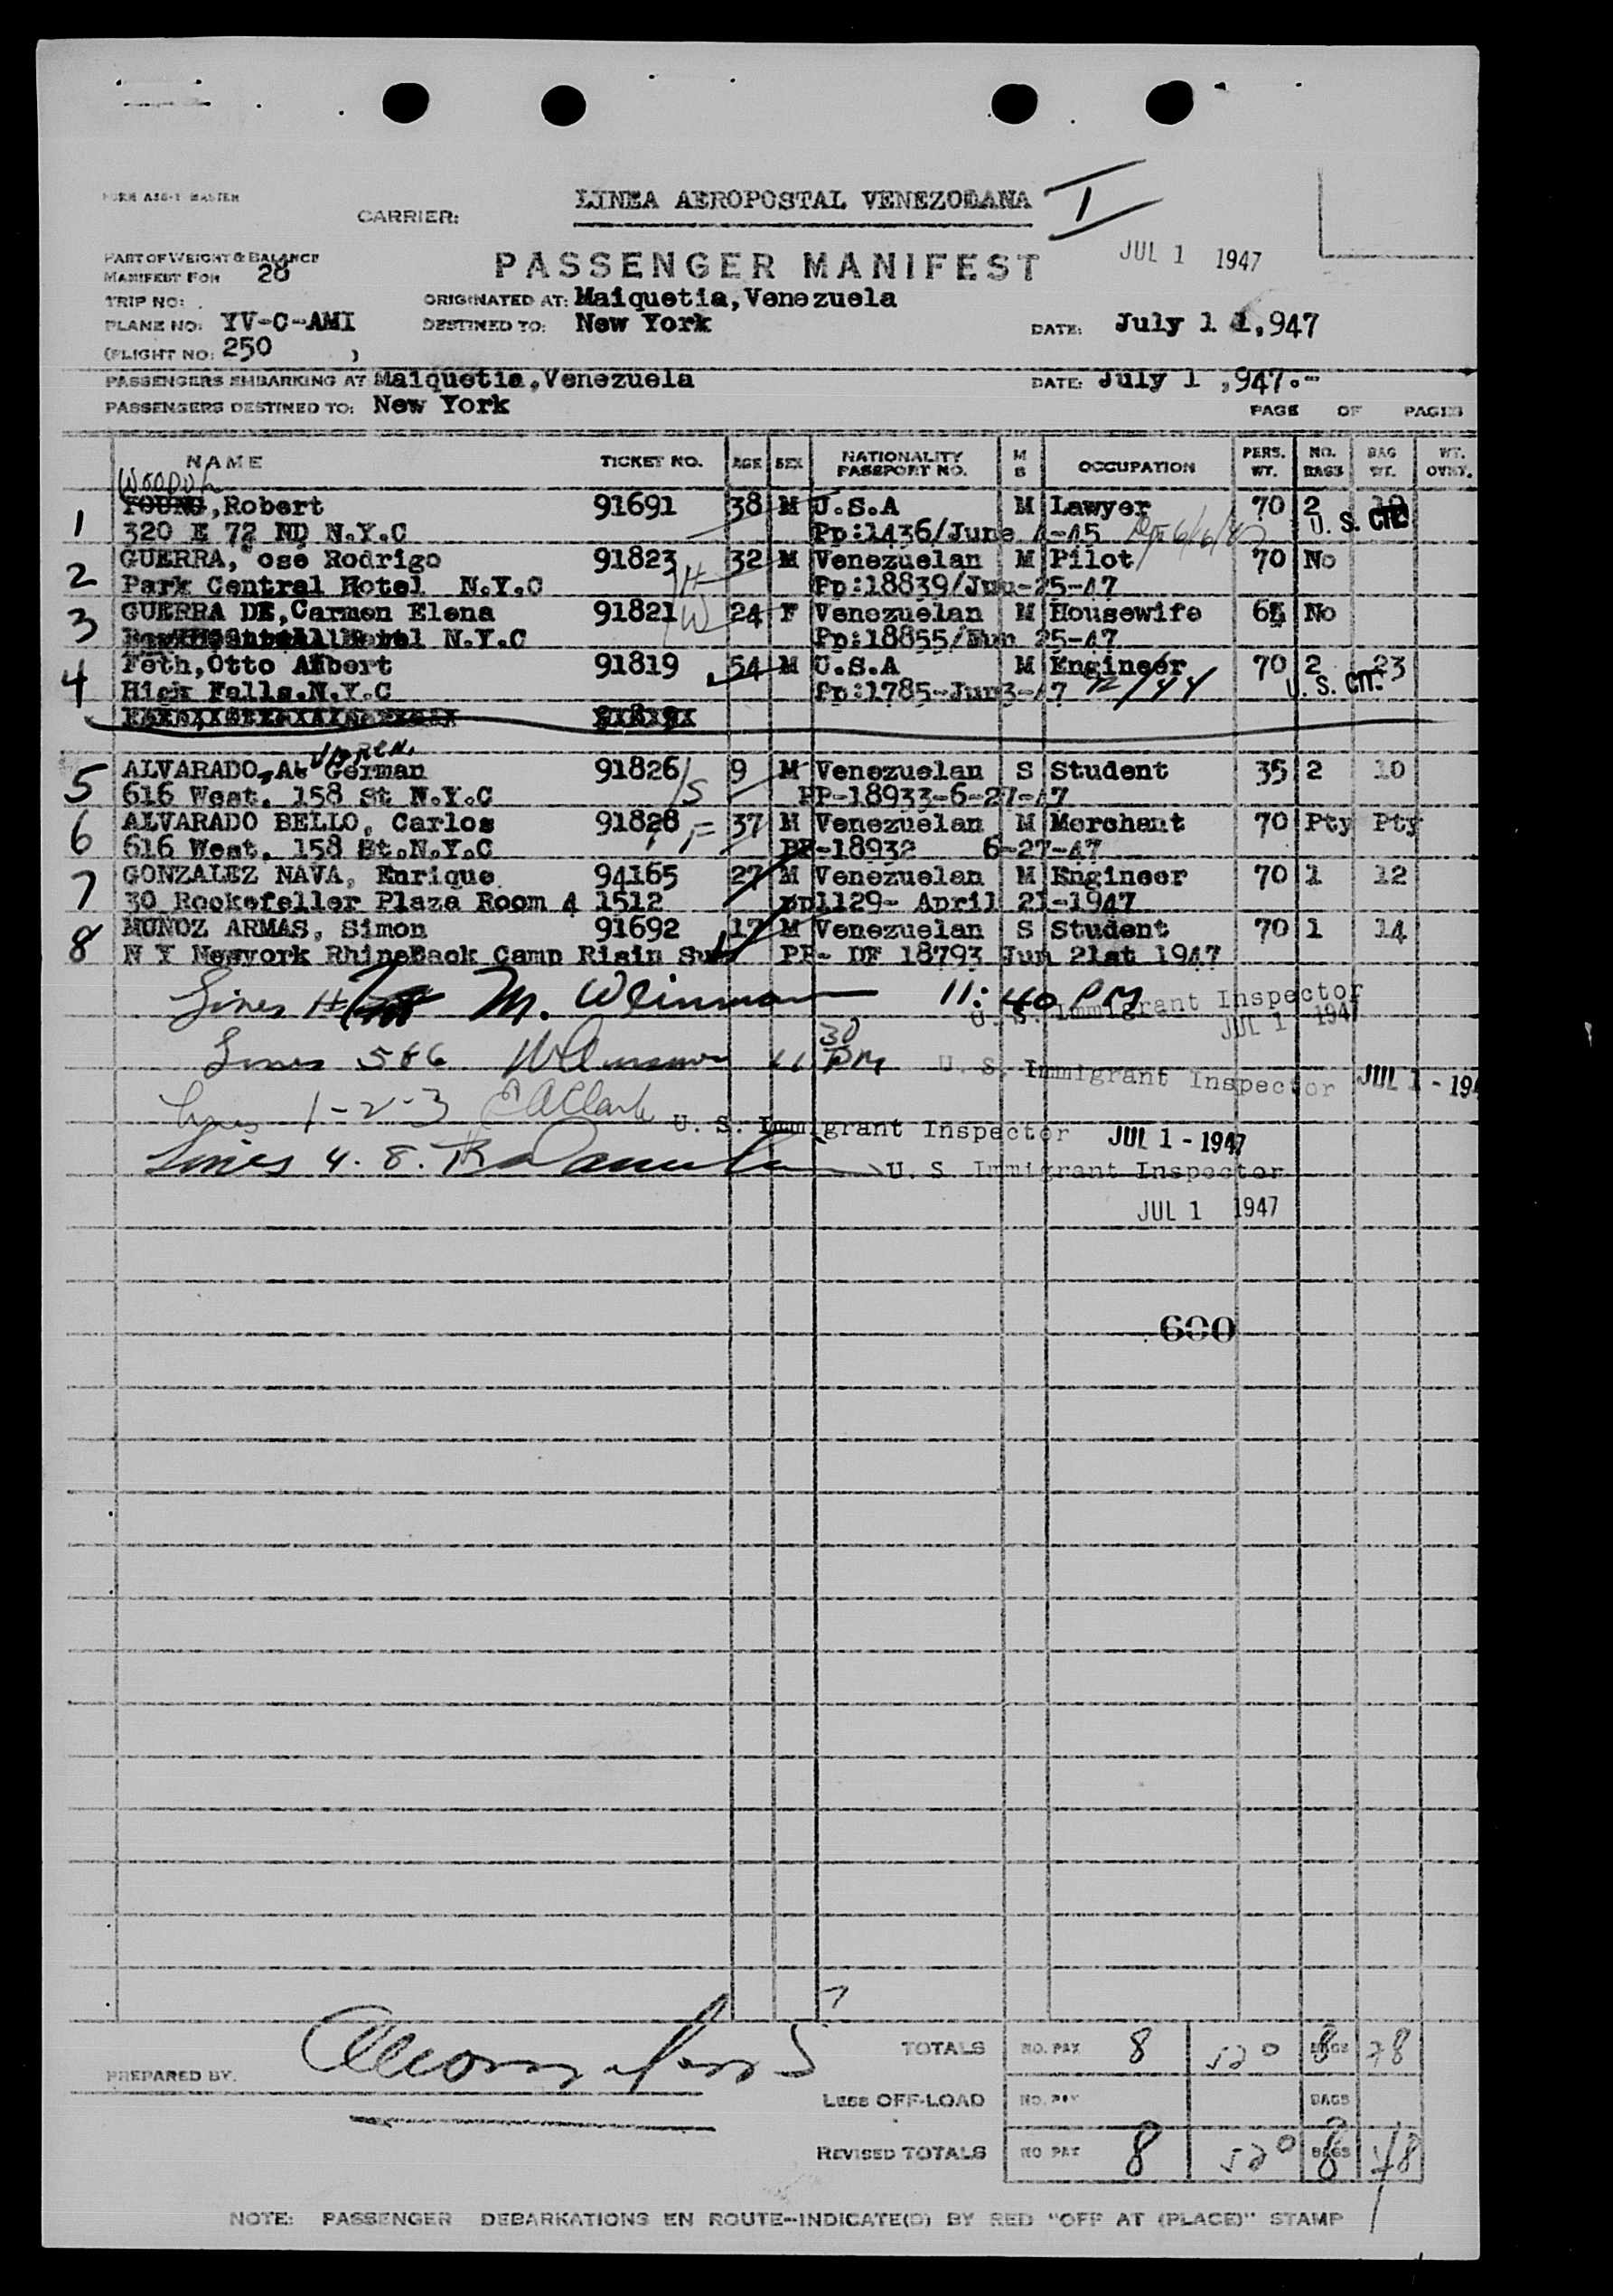 FORM ASG-1 MASTER
CARRIER: LINEA AEROPOSTAL VENEZOLANA
1
JUL 1 1947
PART OF WEIGHT & BALANCE
MANIFEST FOR 20
PASSENGER MANIFEST
TRIP NO:
ORIGINATED AT: Maiquetia,Venezuela
PLANE NO: YV-C-AMI
DESTINED TO: New York
DATE: July 1 1,947
(FLIGHT NO: 250 )
PASSENGERS EMBARKING AT Maiquetia,Venezuela
DATE: July 1 ,947.-
PASSENGERS DESTINED TO: New York
PAGE OF PAGES
NAME TICKET NO. AGE SEX NATIONALITY PASSPORT NO. M S OCCUPATION PERS. WT. NO. BAGS BAG WT. WT. OVHT.
1 YOUNG,Robert 91691 38 M U.S.A M Lawyer 70 2
320 E 72 ND N.Y.C Pp:1436/June 4-45 U. S. CIT.
2 GUERRA, ose Rodrigo 91823 H 32 M Venezuelan M Pilot 70 No
Park Central Hotel N.Y.C Pp:18839/Jun-25-47
3 GUERRA DE,Carmen Elena 91821 W 24 F Venezuelan M Housewife 65 No
Hotel N.Y.C Pp:18855/Jun 25-47
4 Feth,Otto Albert 91819 54 M U.S.A M Engineer 70 2 23
Hick Falls.N.Y.C Pp:1785-Jun3-47 12/44 U. S. CIT.
5 ALVARADO, German 91826 S 9 M Venezuelan S Student 35 2 10
616 West. 158 St N.Y.C PP-18933-6-27-47
6 ALVARADO BELLO, Carlos 91828 F 37 M Venezuelan M Merchant 70 Pty Pty
616 West. 158 St.N.Y.C PP-18932 6-27-47
7 GONZALEZ NAVA, Enrique 94165 27 M Venezuelan M Engineer 70 1 12
30 Rockefeller Plaza Room 4 1512 pp1129- April 21-1947
8 MUNOZ ARMAS, Simon 91692 17 M Venezuelan S Student 70 1 14
N Y Newyork RhineBack Camp Risin Sun PP- DF 18793 Jun 21st 1947
Lines M. Weinman 11:40 PM U. S. Immigrant Inspector
JUL 1 1947
Lines 5 & 6 11 30 PM U. S. Immigrant Inspector JUL 1 - 194
Lines 1-2-3 Clark U. S. Immigrant Inspector JUL 1 - 1947
Lines 4. 8. U. S. Immigrant Inspector
JUL 1 1947
600
PREPARED BY:
TOTALS NO. PAX 8 520 BAGS 8 78
LESS OFF-LOAD NO. PAX BAGS
REVISED TOTALS NO PAX 8 520 BAGS 8 78
NOTE: PASSENGER DEBARKATIONS EN ROUTE--INDICATE(D) BY RED "OFF AT (PLACE)" STAMP